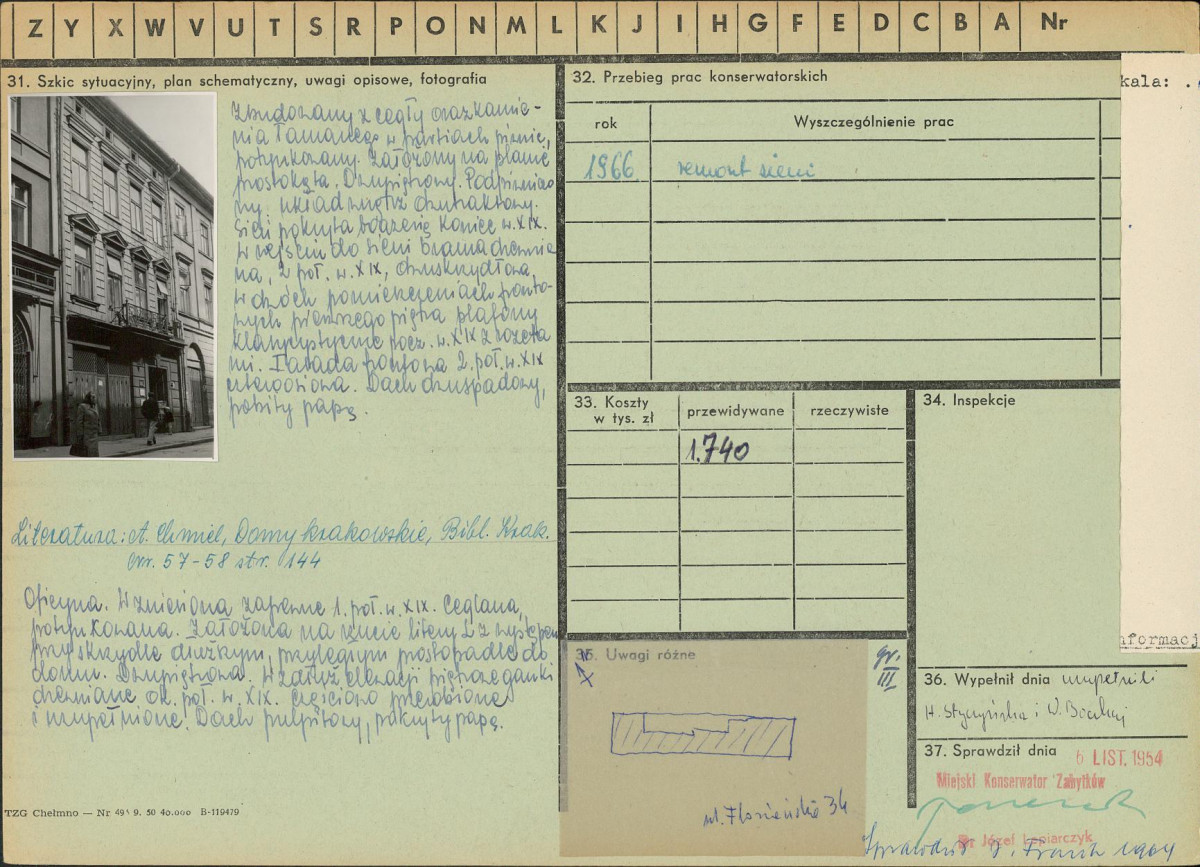 Z Y X W V U T S R P O N M L K J I H G F E D C B A Nr
31. Szkic sytuacyjny, plan schematyczny, uwagi opisowe, fotografia
Zbudowany z cegły oraz kamie-
nia łamanego w partiach piwnic,
potynkowany. Założony na planie
prostokąta. Dwupiętrowy. Podpiwniczo-
ny, układ wnętrz dwutraktowy.
Sień pokryta boazerią koniec w. XIX.
W wejściu do sieni brama drewnia
na, 2 poł. w. XIX, dwuskrzydłowa,
w dwóch pomieszczeniach fronto-
wych pierwszego piętra plafony
klasycystyczne pocz. w. XIX z rozeta
mi. Fasada frontowa 2. poł. w. XIX
czteroosiowa. Dach dwuspadowy,
pobity papą.
Literatura: A. Chmiel, Domy krakowskie, Bibl. Krak.
nr. 57-58 str. 144
Oficyna. Wzniesiona zapewne 1. poł. w. XIX. Ceglana,
potynkowana. Założona na rzucie litery L z występem
przy skrzydle dłuższym, przyległym prostopadle do
domu. Dwupiętrowa. Wzdłuż elewacji piętrze ganki
drewniane ok. poł. w. XIX. Częściowo przerobione
i uzupełnione. Dach pulpitowy, pokryty papą.
TZG Chełmno — Nr 49 9. 50 40.000 B-119479
32. Przebieg prac konserwatorskich
rok Wyszczególnienie prac
1966 remont sieni
33. Koszty
w tys. zł
przewidywane rzeczywiste
1.740
34. Inspekcje
35. Uwagi różne
gr.
III
ul. Floriańska 34
kala:
nformacj
36. Wypełnił dnia uzupełnili
H. Styczyńska i
37. Sprawdził dnia 6 LIST. 1954
Miejski Konserwator Zabytków
Dr Józef Lepiarczyk
Sprawdził J. Franta 1964